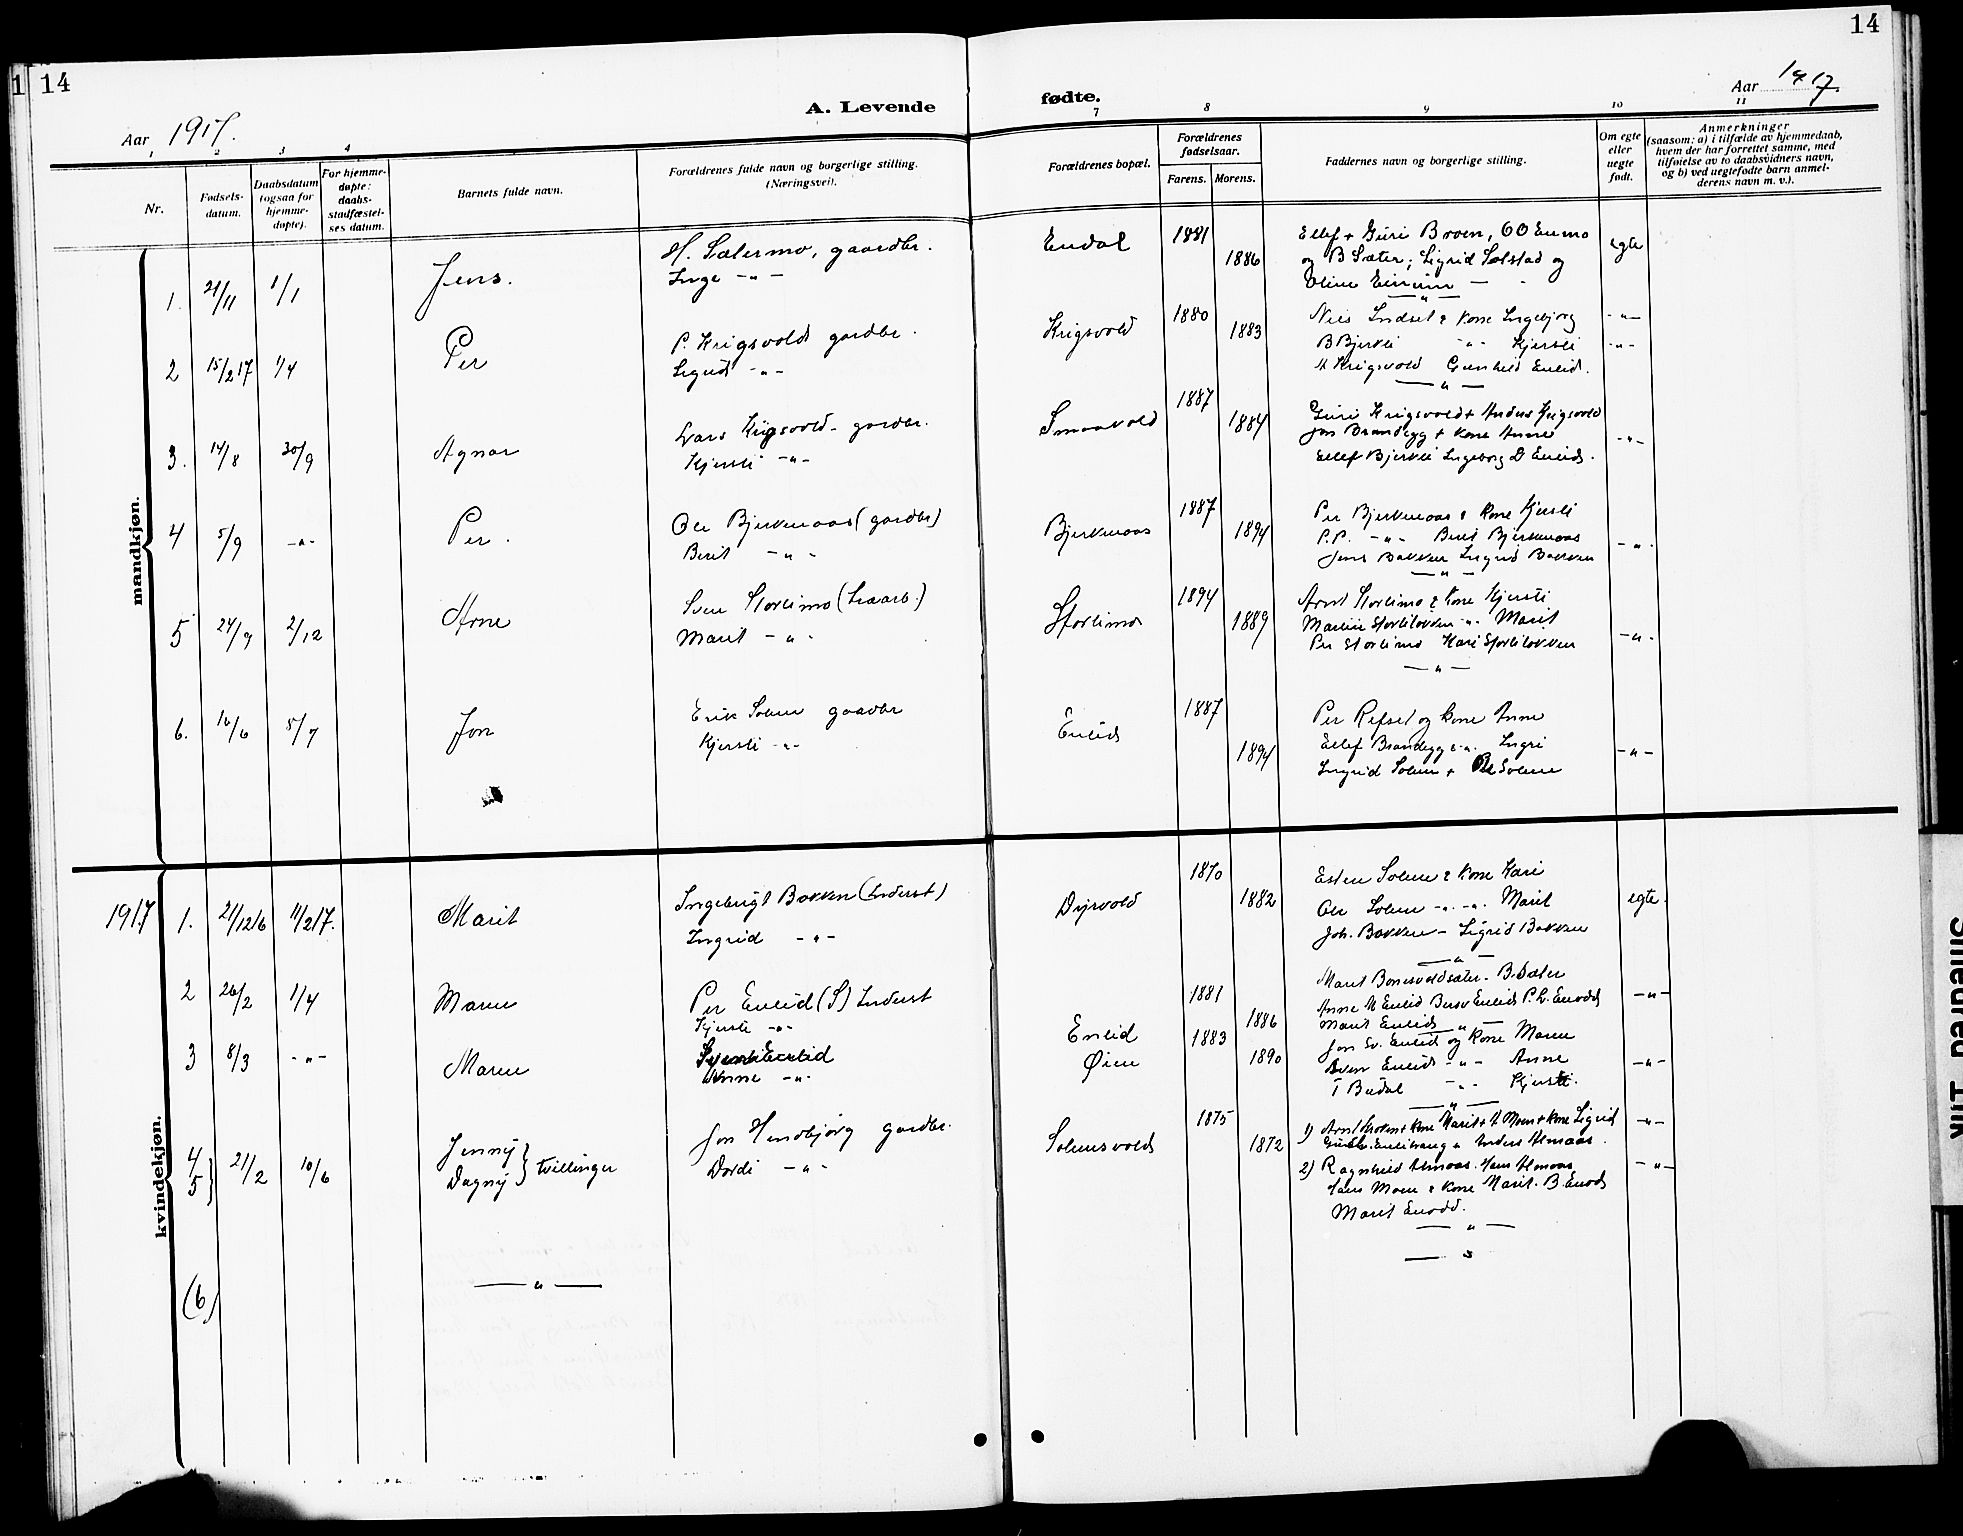 14
14
A. Levende fødte.
Aar 1917.
Aar 1917.
1 2 3 4 7 8 9 10 11
Nr.
Fødsels-
datum.
Daabsdatum
(ogsaa for
hjemme-
døpte).
For hjemme-
døpte:
daabs-
stadfæstel-
ses datum.
Barnets fulde navn.
Forældrenes fulde navn og borgerlige stilling.
(Næringsvei).
Forældrenes bopæl.
Forældrenes
fødselsaar.
Farens. Morens.
Faddernes navn og borgerlige stilling.
Om egte
eller
uegte
født.
Anmerkninger
(saasom: a) i tilfælde av hjemmedaab,
hvem der har forrettet samme, med
tilføielse av to daabsvidners navn,
og b) ved uegtefødte barn anmel-
derens navn m. v.).
mandkjøn.
1. 21/11 1/1 Jens.
H. Sætermo, gaardbr.
Inge -"-
Endal 1881 1886
Ellef + Guri Broen, O O Enmo
og B Sæter; Sigrid Solstad og
Oline
egte
2 15/2 17 1/4 Per
P. Krigsvold gardbr.
Sigrid -"-
Krigsvold 1880 1883
Nils Indset & kone Ingebjørg
B Bjerkli -"- Kjersti
H Krigsvold Gunhild Enlid.
-"-
-"-
3. 14/8 30/9 Agnar
Lars Krigsvold - gardbr.
Kjersti -"-
Smaavold 1887 1884
Guri Krigsvold + Anders Krigsvold
Jon Brandegg + kone Anne
Ellef Bjerkli Ingeborg D Enlid.
-"-
4 5/9 -"- Per.
Ole Bjerkenaas (gardbr)
Berit -"-
Bjerkenaas 1887 1894
Per Bjerkenaas & kone Kjersti
P.P. -"- Berit Bjerkenaas
Jens Bakken Ingrid Bakken
-"-
5 24/9 2/12 Arne
Sven Storlimo
Marit -"-
Storlimo 1894 1889
Arnt Storlimo & kone Kjersti
Martin Storliløkken -"- Marit
Per Storlimo Kari Storliløkken
-"-
6. 16/6 5/7 Jon
Erik Solem gaardbr
Kjersti -"-
Enlid 1887 1894
Per Refset og kone Anne
Ellef Brandegg -"- Ingri
Ingrid Solem + Ole Solem
-"-
kvindekjøn.
1917 1. 21/12 16 11/2 17. Marit
Ingebrigt Bakken (Inderst)
Ingrid -"-
Dyrvold 1870 1882
Esten Solem & kone Kari
Ole Solem -"- Marit
Joh. Bakken - Sigrid Bakken
egte.
2 26/2 1/4 Maren
Per Enlid (S) Inderst
Kjersti -"-
Enlid 1881 1886
Marit Bonesvoldsæter. B. Sæter
Anne M Enlid Berso Enlid P. L. Enodd
Marit Enlid
-"-
3 8/3 -"- Maren
Sven Enlid
Anne -"-
Øien 1883 1890
Jon Sv. Enlid og kone Maren
Sven Enlid -"- Anne
T Budal -"- Kjersti.
-"-
4
5 21/2 10/6 Jenny
Dagny } tvillinger
Jon Hindbjørg gardbr.
Dordi -"-
Solemsvold 1875 1872
1) Arnt Moen + kone Marit + H Moen + kone Sigrid
Enlihaug & Anders Almaas.
2) Ragnhild Almaas. Hans Almaas
Hans Moen & kone Marit. B. Enodd
Marit Enodd.
-"-
-"-
(6) -"-